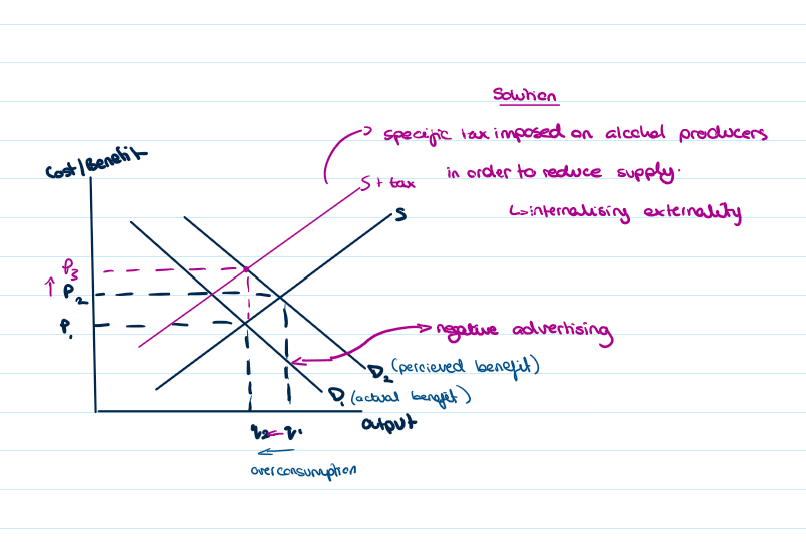 Solution
specific tax imposed on alcohol producers
in order to reduce supply.
↳internalising externality
Cost/Benefit
S + tax
S
P3
↑ P2
P1
negative advertising
D2 (percieved benefit)
D1 (actual benefit)
output
q2 ← q1
overconsumption